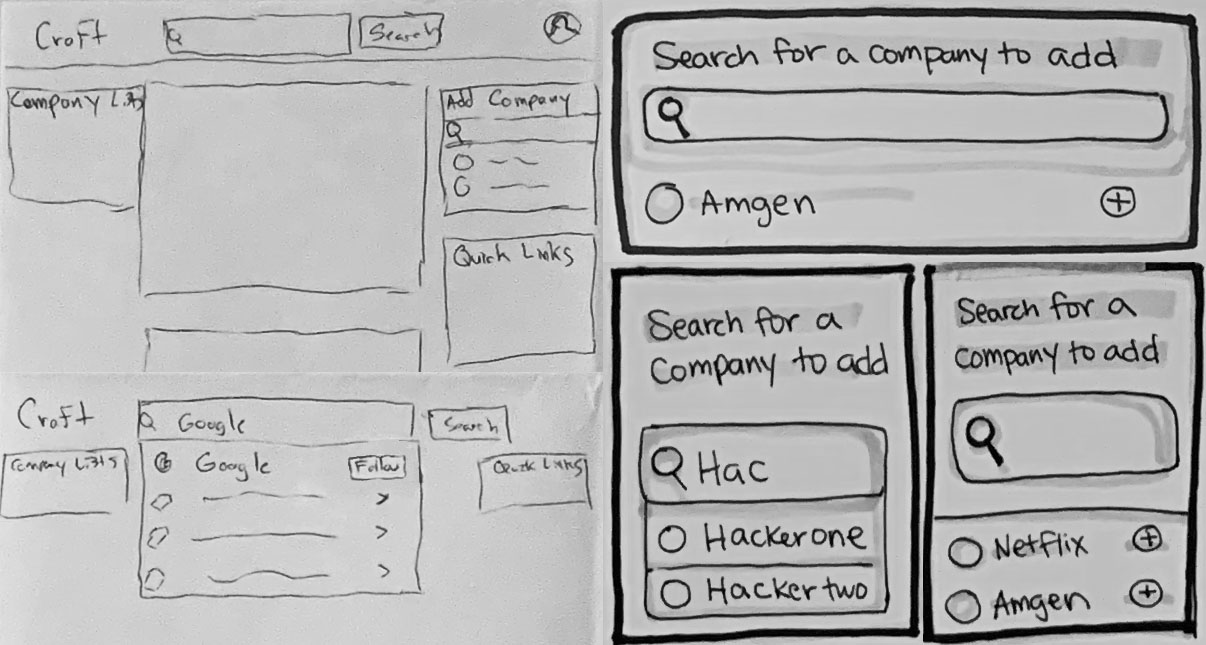 Croft
Search
Company Lists
Add Company
Quick Links
Croft
Google
Search
Company Lists
Google
Follow
Quick Links
Search for a company to add
Amgen
Search for a
company to add
Hac
Hackerone
Hackertwo
Search for a
company to add
Netflix
Amgen